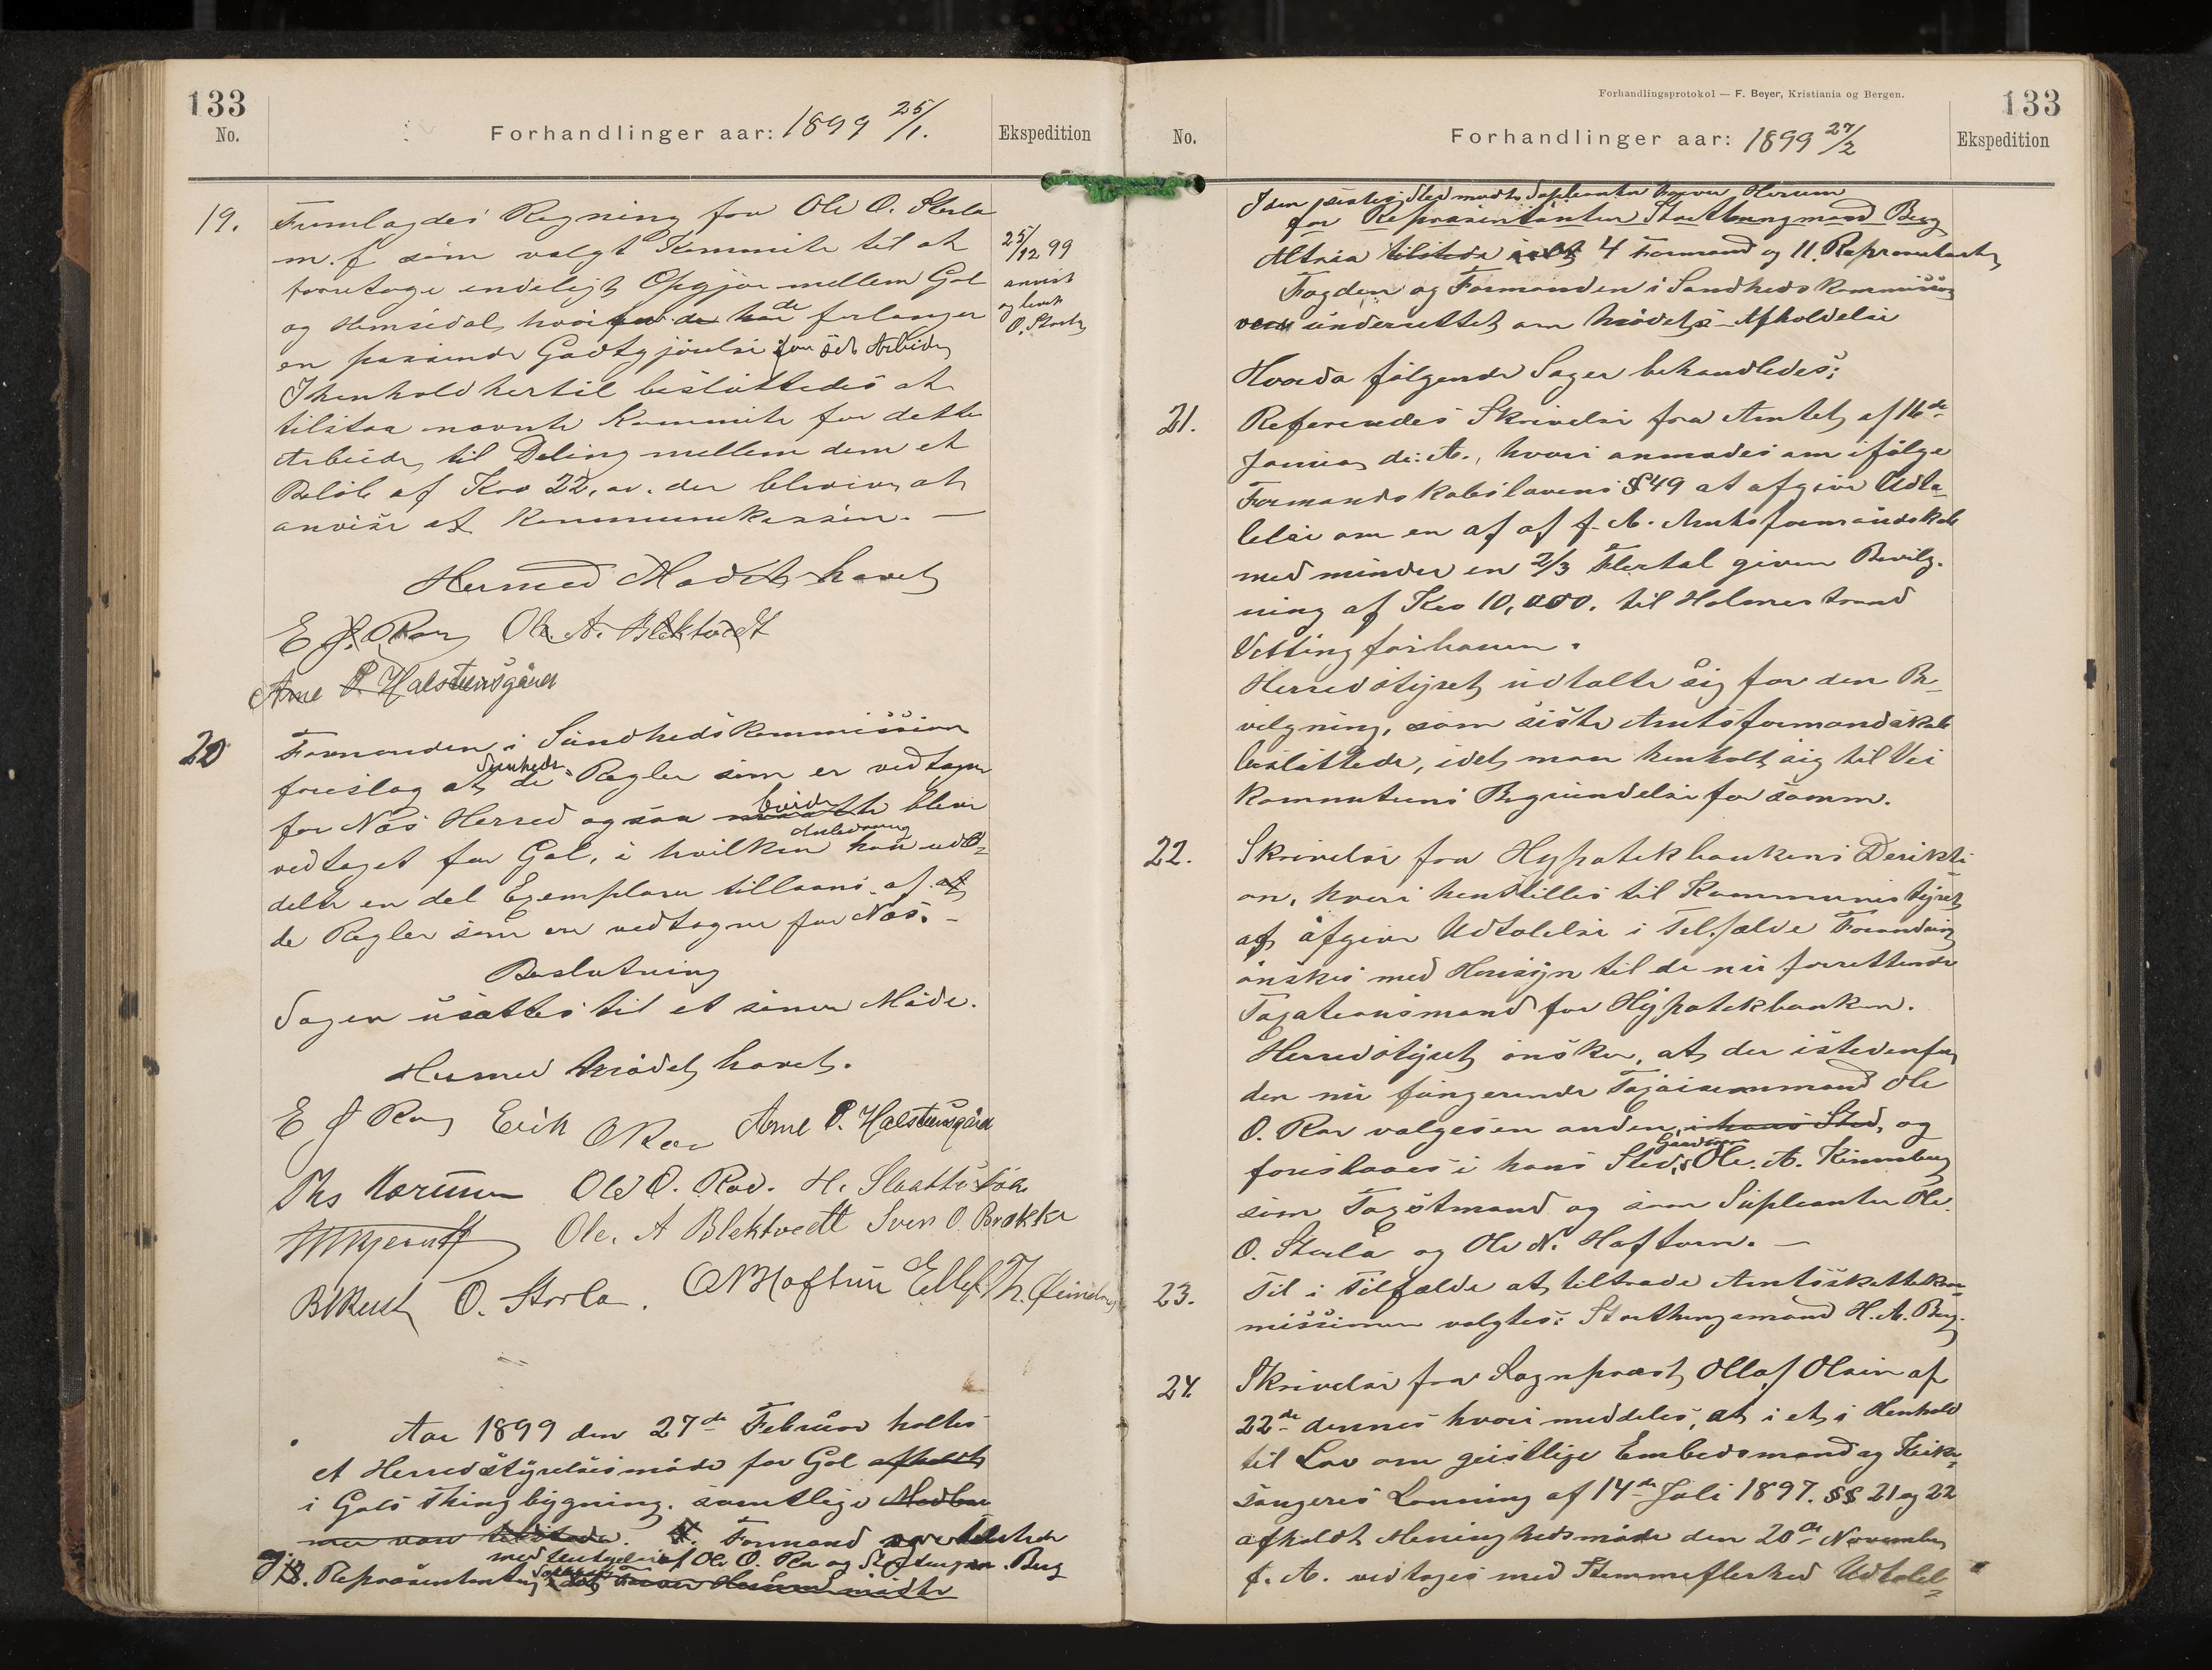 133
No.
Forhandlinger aar: 1899 25/1.
Ekspedition
19.
Fremlagdes Regning fra Ole O. Storla
m. f. som valgt Kommite til at
foretage endeligt Opgjør mellem Gol
og Hemsedal, hvori de forlanger
en passende Godtgjørelse for sit Arbeide
I henhold hertil besluttedes at
tilstaa nævnte Kommite for dette
Arbeide til Deling mellem dem et
Beløb af Kro 22, der bliver at
anvise af Kommunekassen. —
25/12 99
anvist
O. Storla
Hermed Mødet hævet
E J. Roe Ole. A. Blektvedt
Arne P. Halstensgård
20
Formanden i Sundhedskommission
foreslog at de Sunheds- Regler som er vedtagen
for Næs Herred ogsaa blive
vedtaget for Gol, i hvilken Anledning han udd-
delte en del Exemplarer tillaans af
de Regler som er vedtagne for Næs. —
Beslutning
Sagen usattes til et senere Møde.
Hermed Mødet hævet.
E J Roe Erik O Roe Arne P. Halstensgård
Ole O. Roe. H.
Ole. A Blektvedt Sven O. Brakke
O. Storla.
Aar 1899 den 27de Februar holtes
et Herredstyrelsesmøde for Gol afholdt
i Gols Thingbygning. samtlige
Formænd
af Ole O. Roe og Berg
Repræsentanter
Forhandlingsprotokol — F. Beyer, Kristiania og Bergen.
133
No.
Forhandlinger aar: 1899 27/2
Ekspedition
I den sidstes Sted mødte Supleanten
for Repræsentanten Storthingmand Berg
Altsaa tilstede ialt 4 Formænd og 11. Repræsentanter
Fogden og Formanden i Sundhedskommission
var underrettet om Mødets Afholdelse
Hvorda følgende Sager behandledes:
21.
Refereredes Skrivelse fra Amtet af 16de
Januar d: A., hvori anmodes om ifølge
Formandskabslovens § 49 at afgive Udta-
lelse om en af af f. A. Amtsformandskab
med mindre en 2/3 Flertal given Bevilg-
ning af Kro 10,000. til Holmestrand
Vittingfosbanen.
Herredstyret udtalte sig for den Be-
vilgning, som siste Amtsformandskab
besluttede, idet man henholt sig til Vei
komuteens Begrundelse for samm.
22.
Skrivelse fra Hypotekbankens Direkti
on, hvori henstilles til Kommunestyret
at afgive Udtalelse i Tilfælde Forandring
ønskes med Hensyn til de nu forrettende
Taxationsmænd for Hypotekbanken.
Herredstyret ønsker, at der istedenfor
den nu fungerende Taxationsmand Ole
O. Roe valges en anden, i hans Sted, og
foreslaaes i hans Sted, Gaardbruger Ole. A. Kinneberg
som Taxstmand og som Supleanter Ole
O. Storla og Ole N. Haftorn. —
23.
Til i Tilfælde at tiltræde Amtsskattekom-
missionen valgtes: Storthingsmand H. A. Berg.
24.
Skrivelse fra Sognepræst Ollaf Olsen af
22de dennes hvori meddeles, at i et i Henhold
til Lov om geistlige Embedsmænd og Kirke-
sangeres Lønning af 14de Juli 1897. §§ 21 og 22
afholdt Menighedsmøde den 20de November
f. A. vedtoges med Stemmeflerhed Udtalel-